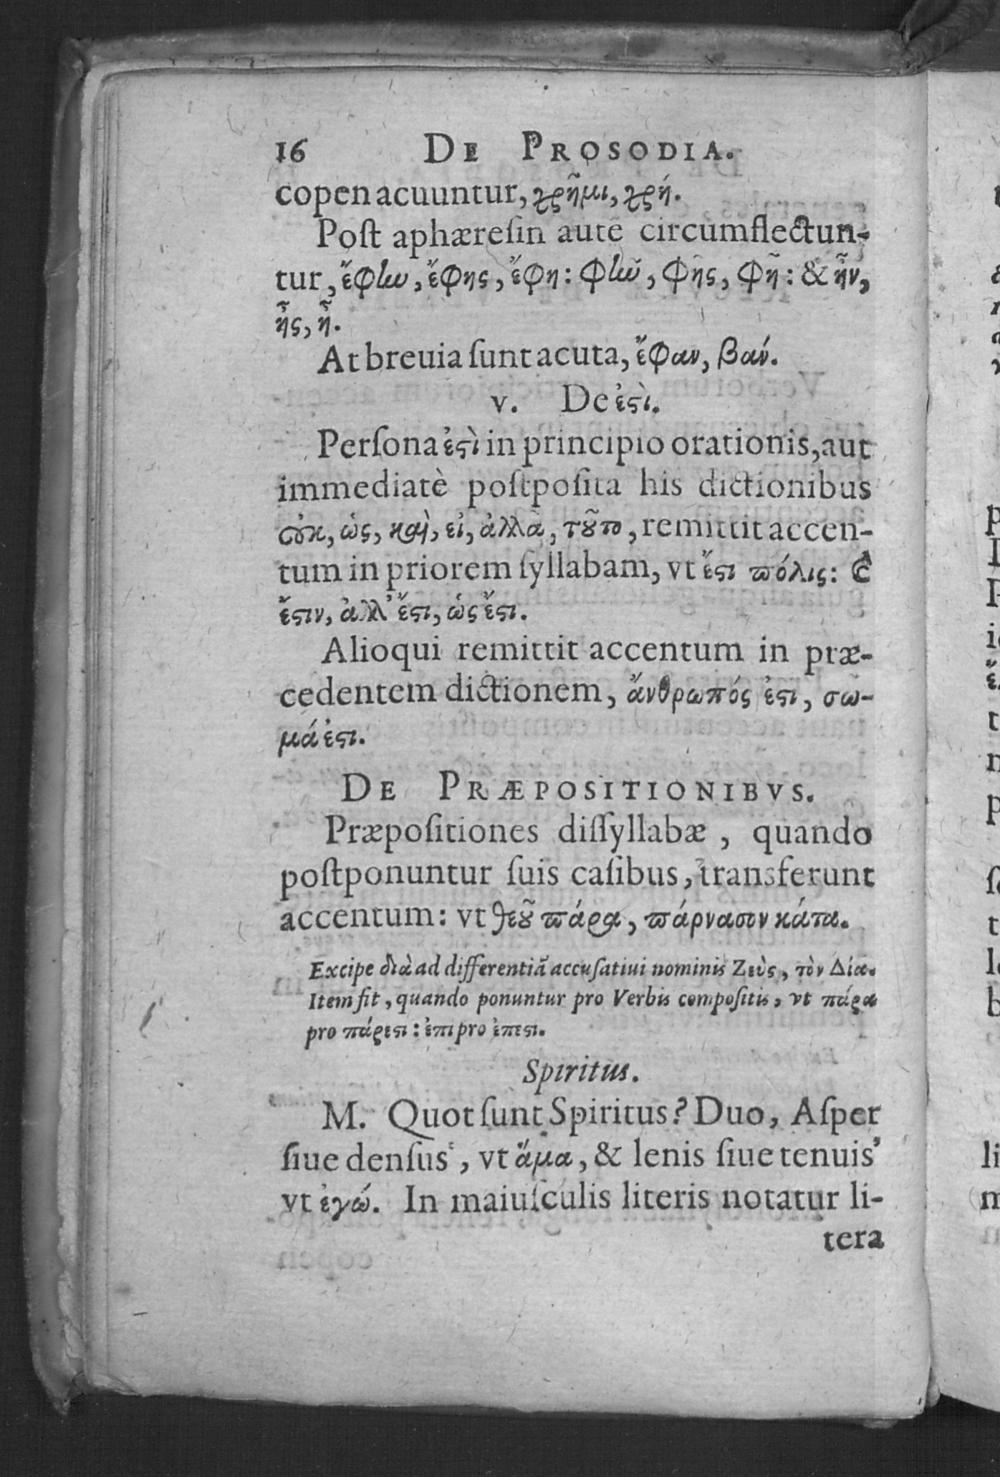 16 DE PROSODIA.
copen acuuntur, χρῆμι, χρή.
Poſt aphæreſin autē circumflectun-
tur, ἔφlω, ἔφης, ἔφη: φlῶ, φῆς, φῆ: & ἦν,
ἦς, ἦ.
At breuia ſunt acuta, ἔφαν, βαν́.
v. De ἐϛὶ.
Perſona ἐϛὶ in principio orationis, aut
immediatè poſtpoſita his dictionibus
οὐκ, ὡς, καὶ, εἰ, ἀλλὰ, τȣ͂το, remittit accen-
tum in priorem ſyllabam, vt ἔϛι πόλις: εἰ
ἔϛιν, ἀλλ' ἔϛι, ὡς ἔϛι.
Alioqui remittit accentum in præ-
cedentem dictionem, ἄνθρωπός ἐϛι, σω-
μά ἐϛι.
DE PRÆPOSITIONIBVS.
Præpoſitiones diſſyllabæ, quando
poſtponuntur ſuis caſibus, transferunt
accentum: vt θεȣ͂ πάρα, πάρνασον κάτα.
Excipe διὰ ad differentiā accuſatiui nominis Ζεὺς, τὸν Δία.
Item fit, quando ponuntur pro Verbis compoſitis, vt πάρα
pro πάρεϛι: ἐπι pro ἐπεϛι.
Spiritus.
M. Quot ſunt Spiritus? Duo, Aſper
ſiue denſus ῾, vt ἅμα, & lenis ſiue tenuis ᾿
vt ἐγώ. In maiuſculis literis notatur li-
tera